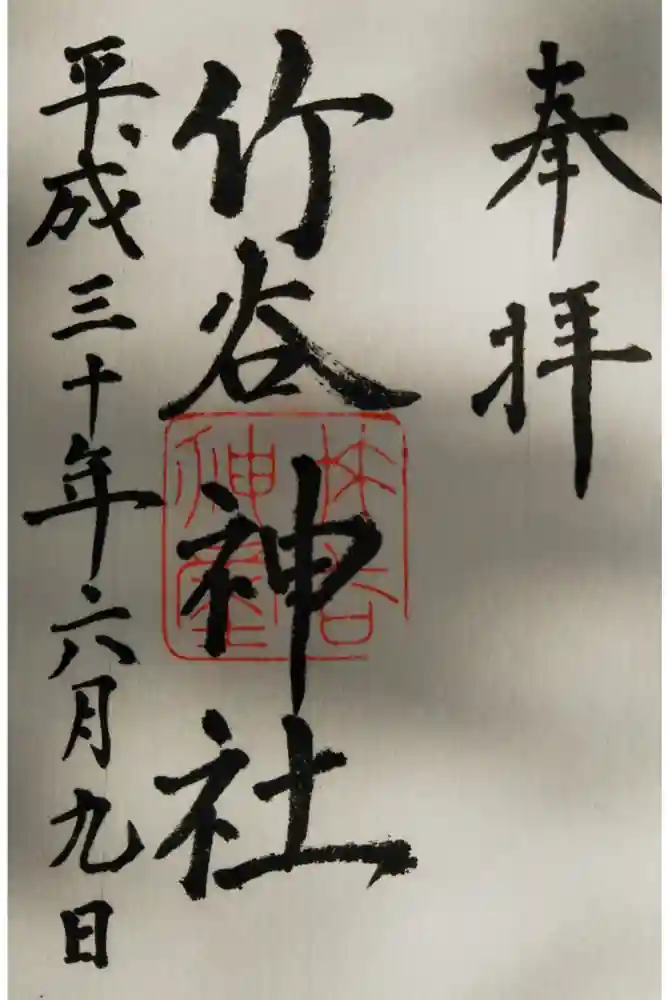 奉拝
竹谷神社
平成三十年六月九日